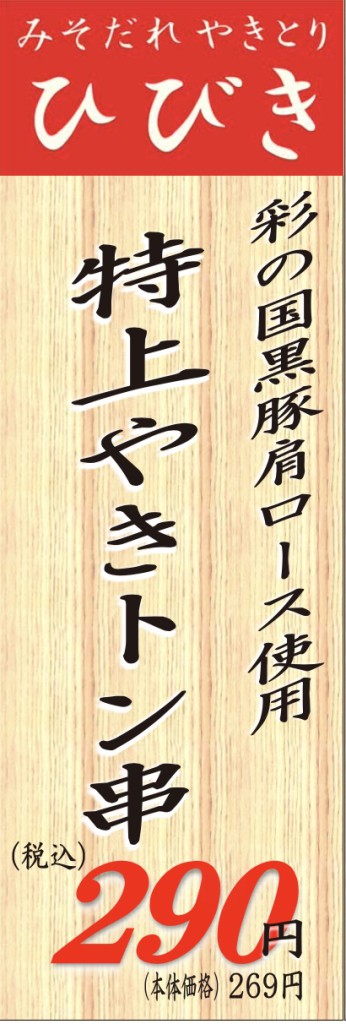 みそだれ やきとり
ひびき
彩の国黒豚肩ロース使用
特上やきトン串
(税込)
290円
(本体価格) 269円